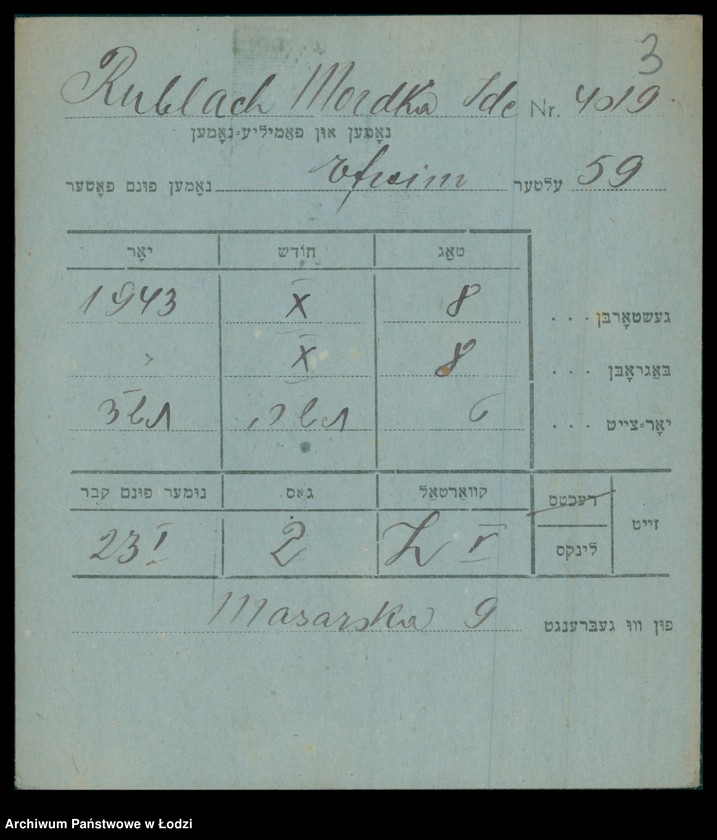 3
Rublach Mordka Ide Nr. 4019
נאָמען און פאַמיליע־נאָמען
נאָמען פונם פאָטער Efroim עלטער 59
יאָר חודש טאָג
1943 X 8 געשטאָרבן . . .
" X 8 באַגראָבן . . .
תשד תשרי ט יאָר־צייט . . .
נומער פונם קבר גאס קוואַרטאַל רעכטס זייט
23 I 2 L V לינקס
Masarska 9 פון וווּ געברענגט
Archiwum Państwowe w Łodzi